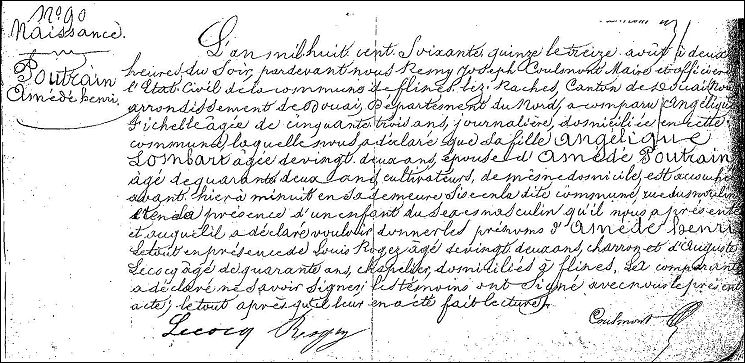 N° 90
Naissance.
Poutrain
Amédé henri,
L'an mil huit cent Soixante quinze le treize août à deux
heures du Soir, pardevant nous Remy Joseph Coulmont Maire et officier de
l'Etat Civil de la commune de flines lez Raches, Canton de Douai
arrondissement de Douai, Département du Nord, a comparu Angélique
âgée de cinquante trois ans, journalière, domiciliée en cette
commune laquelle nous a déclaré que Sa fille Angélique
Lombart agée de vingt deux ans, épouse d'Amédé Poutrain
âgé de quarante deux ans, cultivateurs, de même domicile, est accouchée
avant hier à minuit en Sa demeure Sise en la dite commune, rue du moulin
et en la présence d'un enfant du Sexe masculin qu'il nous a présenté
et auquel il a déclaré vouloir donner les prénoms d'Amédé henri
Le tout en présence de Louis Rogez âgé de vingt deux ans, charron et d'Auguste
Lecocq âgé de quarante ans, chapelier, domiciliés à flines, La comparante
a déclaré ne Savoir Signer, les témoins ont Signé avec nous le présent
acte, le tout après qu'il leur en a été fait lecture.
Lecocq Rogez Coulmont